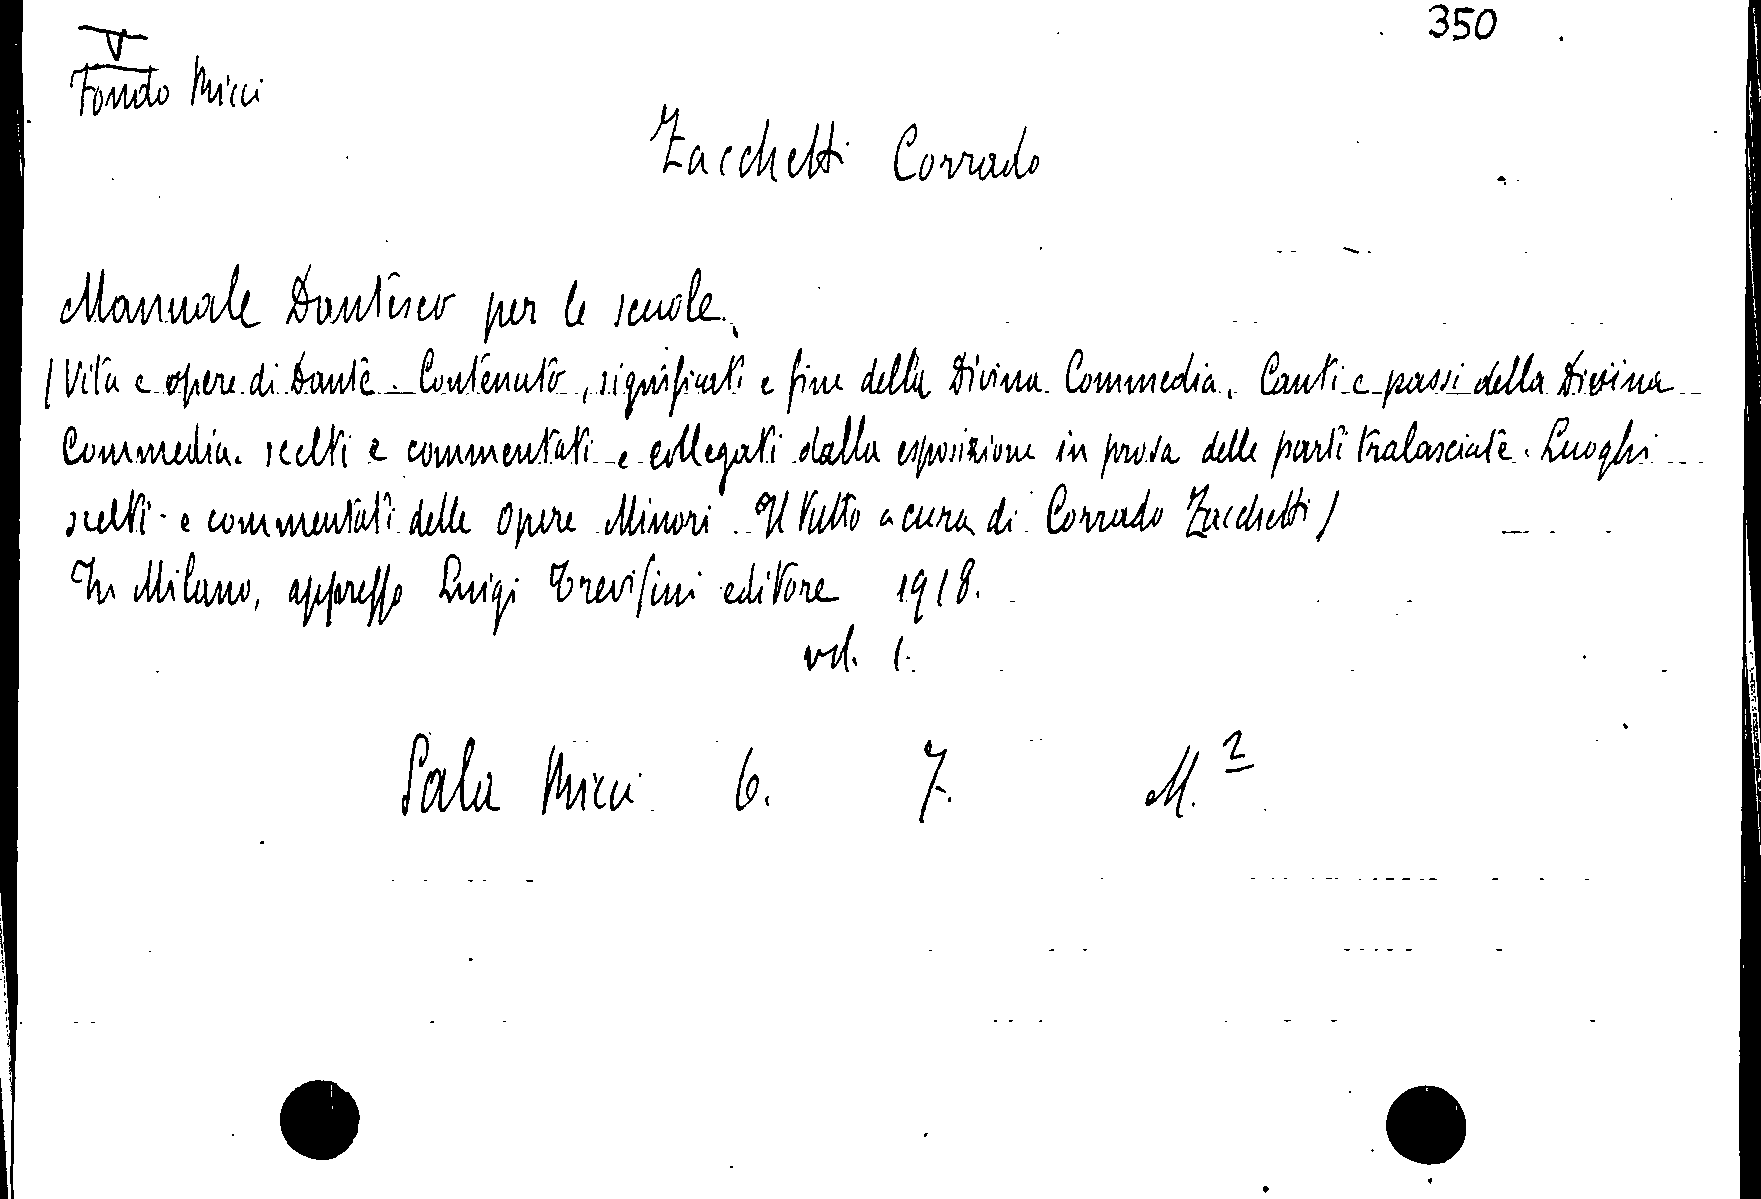 350
V
Fondo Micci
Zacchetti Corrado
Manuale Dantesco per le scuole.
/Vita e opere di Dante. Contenuto, significati e fine della Divina Commedia. Canti e passi della Divina
Commedia. scelti e commentati e collegati dalla esposizione in prosa delle parti tralasciate. Luoghi
scelti e commentati delle Opere Minori. Il tutto a cura di Corrado Zacchetti/
In Milano, appreſſo Luigi Treviſini editore 1918.
vol. 1.
Sala Micci 6. 7. M.2